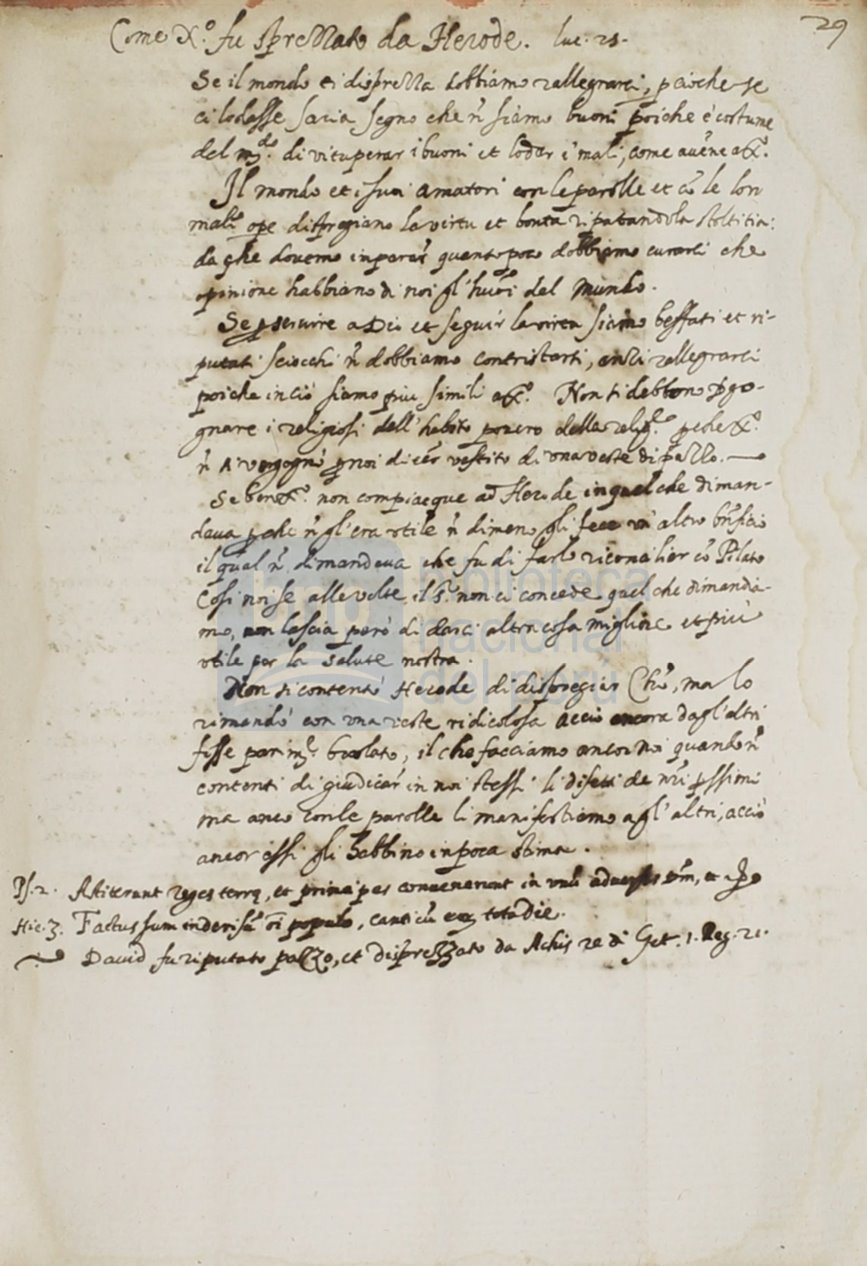 29
Come X.º fu sprezzato da Herode. luc. 23.
Se il mondo ci disprezza dobbiamo rallegrarci, perioche se
ci lodasse saria segno che ñ siamo buoni poiche è costume
del mdo. di vituperar i buoni et lodar i mali, come avene a X.º
Il mondo et i suoi amatori con le parolle et cõ le lor
male ope dispregiano la virtu et bontà riputandola stoltitia:
da che dovemo inparar quanto poco dobbiamo curarci che
opinione habbiano di noi gl'huõi del Mundo.
Se p servire a Dio et seguir la virtu siamo beffati et ri-
putati sciocchi ñ dobbiamo contristarci, anzi rallegrarci
poiche in ciò siamo piu simili a X.º Non si debbono
gnare i religiosi dell'habito povero della relig.e pche X.º
ñ si vergognò p noi di esser vestito di una veste di pazzo.
Se ben X.º non compiacque ad Herode in quel che diman-
dava pche ñ gl'era utile ñ dimeno gli fece un altro bñficio
il qual ñ dimandava che fu di farlo riconciliar cõ Pilato
Cosi noi se alle volte il S.r non ci concede quel che dimandia-
mo, non lascia però di darci altra cosa migliore et più
utile per la salute nostra.
Non si contentò Herode di dispregiar Chro, ma lo
rimandò con una veste ridicolosa acciò ancora dagl'altri
fosse burlato, il che facciamo ancor noi quando ñ
contenti di giudicar in noi stessi li difetti de nri pssimi
ma anco con le parolle li manifestiamo agl'altri, acciò
ancor essi gli habbino in poca stima.
Ps. 2. Astiterunt reges terrę, et principes convenerunt in unũ adversus
Hie. 3. Factus sum in derisũ oi populo, canticũ eoꝝ tota die.
David fu riputato pazzo, et disprezzato da Achis re di Get. 1. Reg. 21.
biblioteca
nacional
del perú